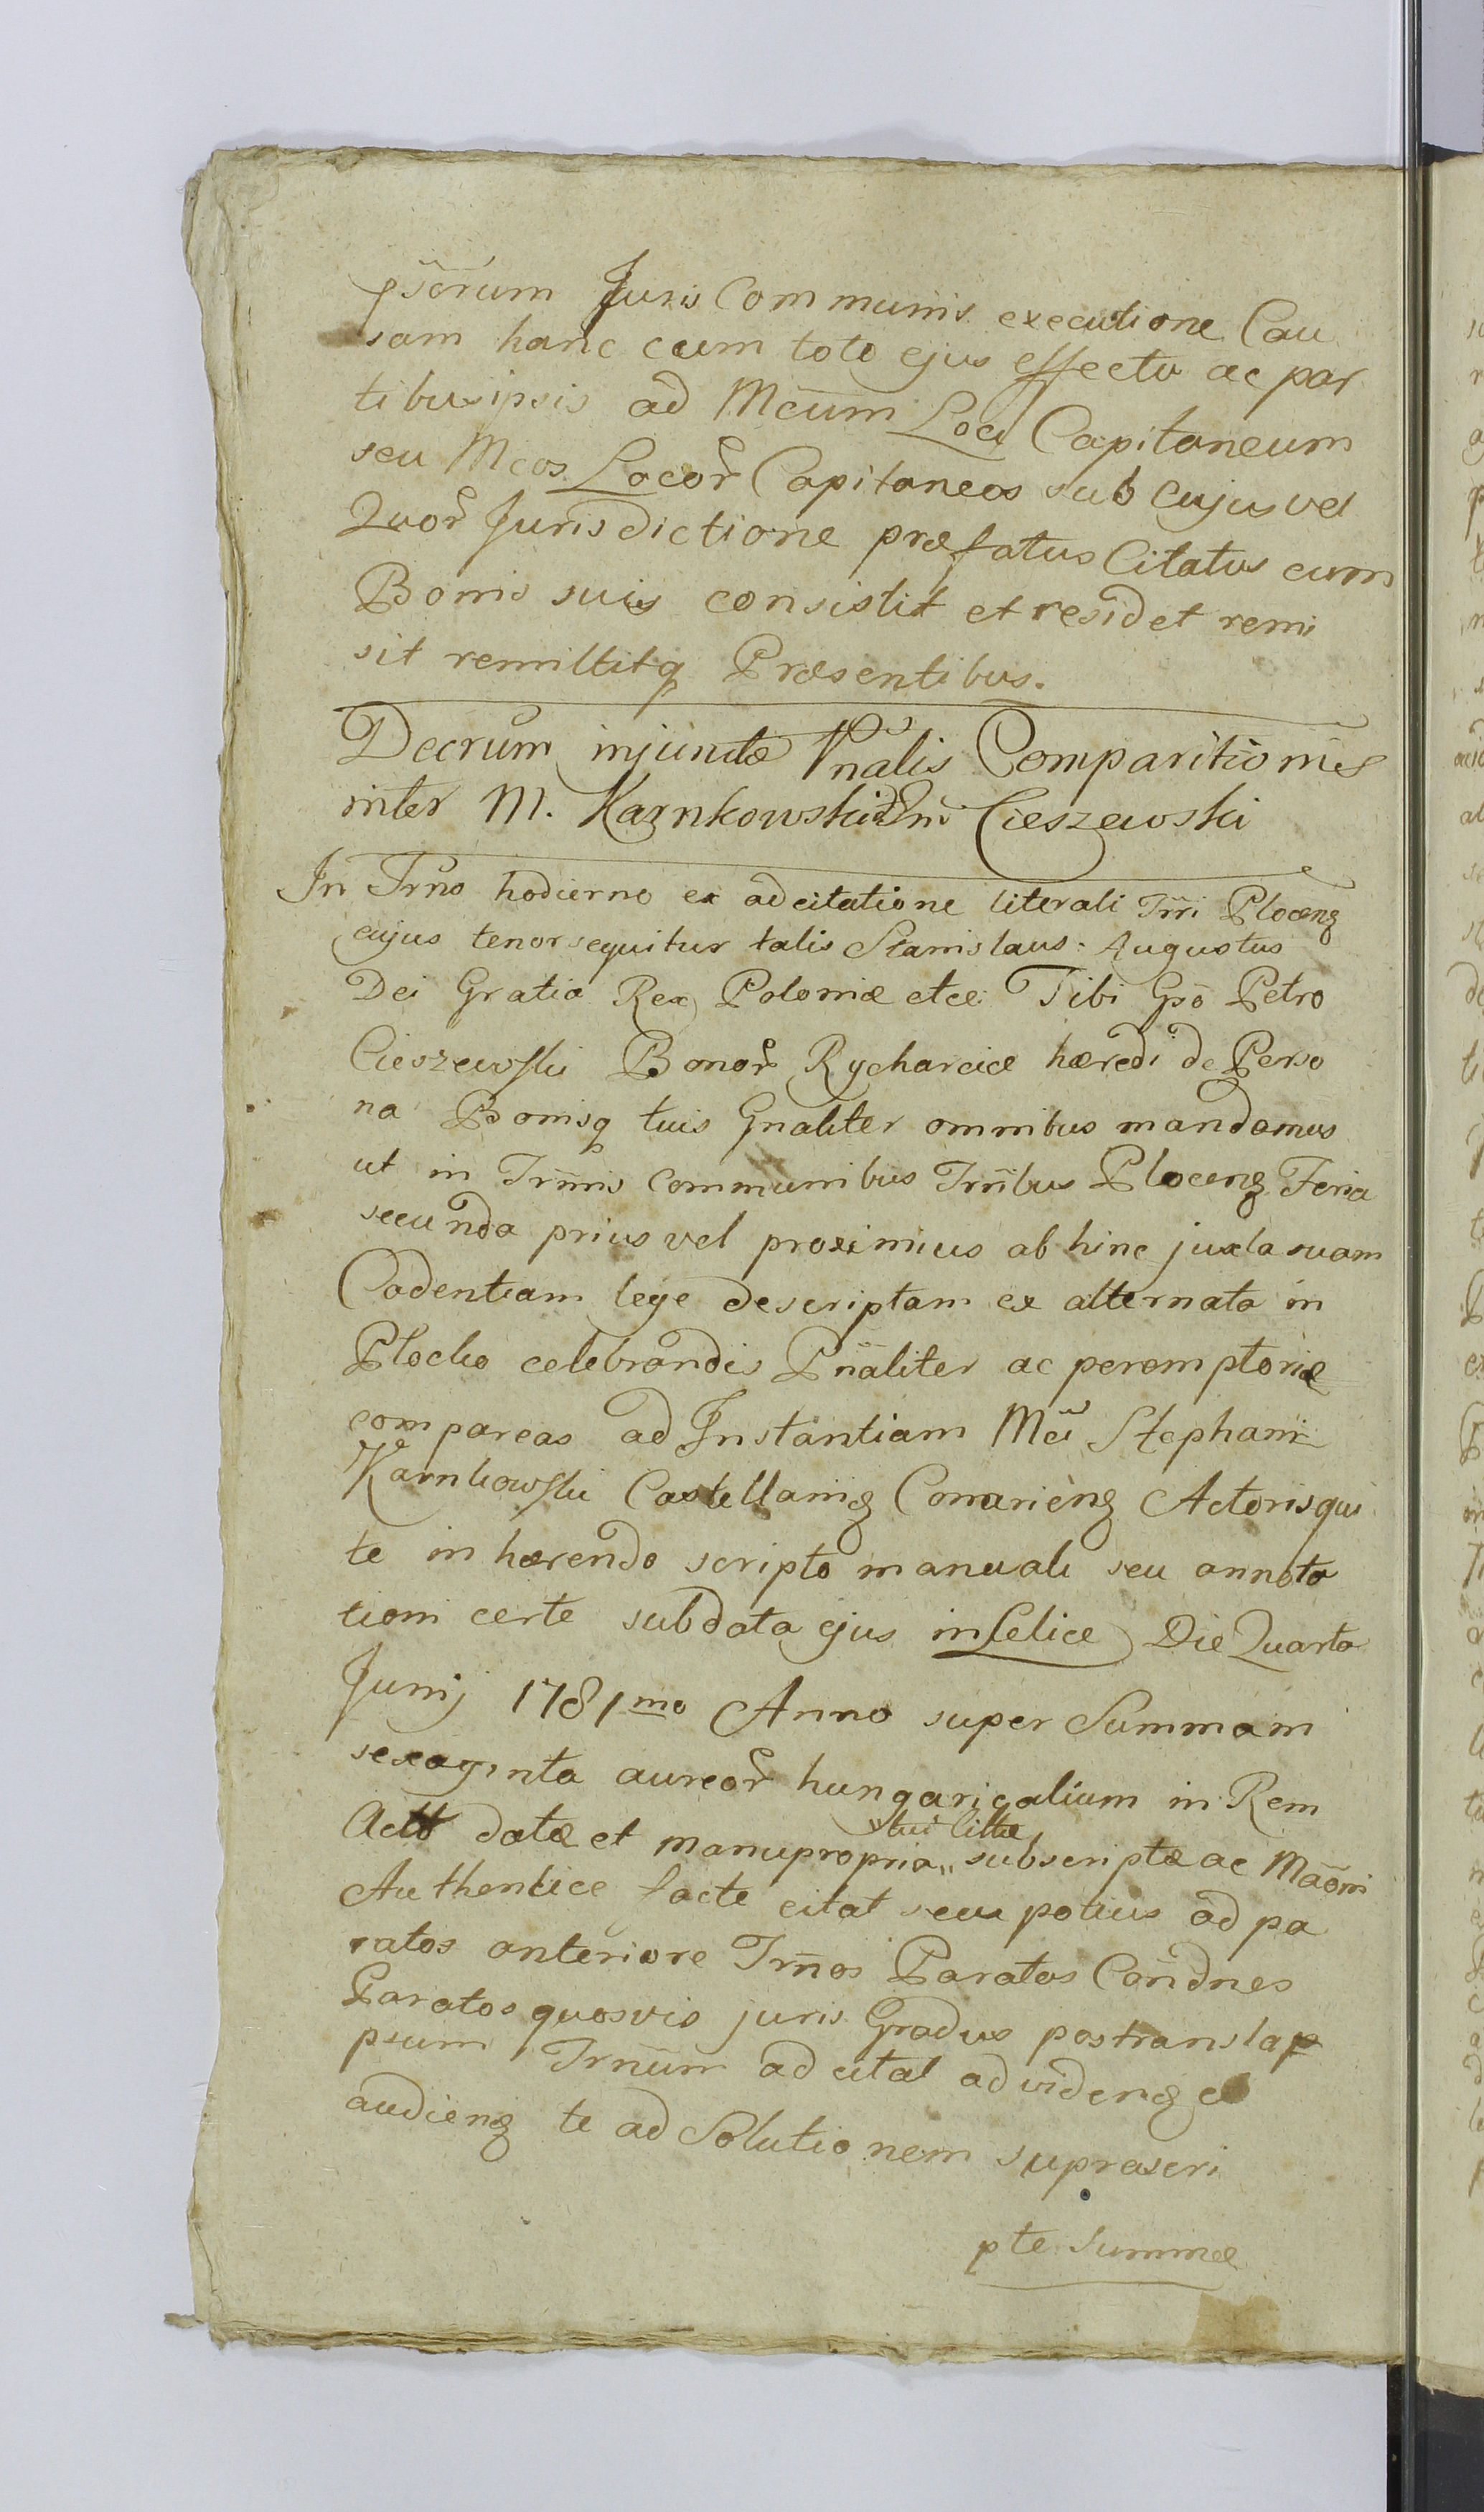 pssorum Juris Communis executione Cau
sam hanc cum toto ejus effectu ac par
tibus ipsis ad Mcum Loci Capitaneum
seu Mcos Locor Capitaneos sub cujus vel
Quor Jurisdictione præfatus Citatus cum
Bonis suis consistit et residet remi
sit remittitq Præsentibus.
Decrum injunctæ Pnalis Comparitionis
inter M. Karnkowski Cieszewski
In Trno hodierno ex adcitatione literali Trri Plocen
cujus tenor sequitur talis Stanislaus: Augustus
Dei Gratia Rex Poloniæ etce: Tibi Gso Petro
Cieszewski Bonor Rycharcice hæredi de Perso
na Bonisq tuis Gnaliter omnibus mandamus
ut in Trmis Communibus Trribus Plocen Feria
secunda prius vel proximius ab hinc juxta suam
Cadentiam lege descriptam ex alternata in
Plocko celebrandis Pnaliter ac peremptoriæ
compareas ad Instantiam Mci Stephani
Karnkowski Castellani Conarien Actoris qui
te in hærendo scripto manuali seu annota
tioni certe sub data ejus in Lelice Die Quarta
Junij 1781mo Anno super Summam
sexaginta aureor hungaricalium in Rem
Actt datæ et manupropria,, subscriptæ ac
tui Cittti
Authentice facte citat seu potius ad pa
ratos anteriore Trnos Paratos Condnes
Paratos quosvis juris Gradus postranslap
psum Trnum ad citat ad viden et
audien te ad Solutionem suprascri
pte Summæ